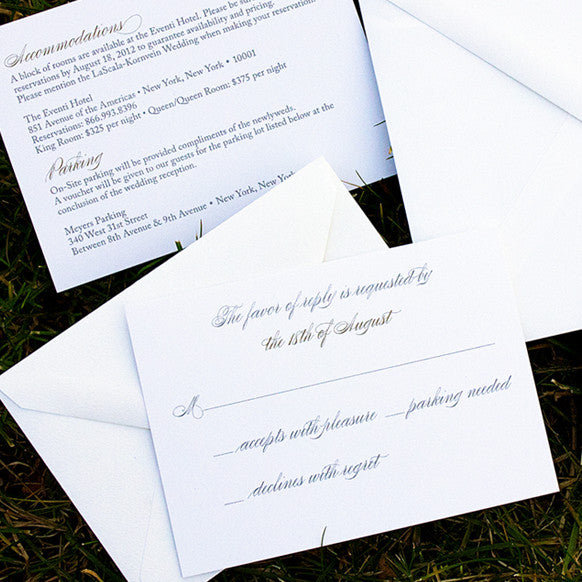 Accommodations
A block of rooms are available at the Eventi Hotel. Please be sure
reservations by August 18, 2012 to guarantee availability and pricing.
Please mention the LaScala-Kornvein Wedding when making your reservation
The Eventi Hotel
851 Avenue of the Americas • New York, New York • 10001
Reservations: 866.993.8396
King Room: $325 per night • Queen/Queen Room: $375 per night
Parking
On-Site parking will be provided compliments of the newlyweds.
A voucher will be given to our guests for the parking lot listed below at the
conclusion of the wedding reception.
Meyers Parking
340 West 31st Street
Between 8th Avenue & 9th Avenue • New York, New York
The favor of reply is requested by
the 18th of August
M
__ accepts with pleasure __ parking needed
__ declines with regret